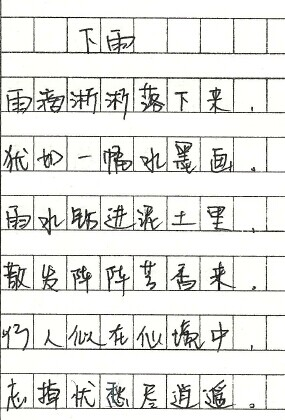 下雨
雨着淅淅落下来，
犹如一幅水墨画。
雨水钻进泥土里，
散发阵阵芳香来。
行人似在仙境中，
忘掉忧愁尽逍遥。